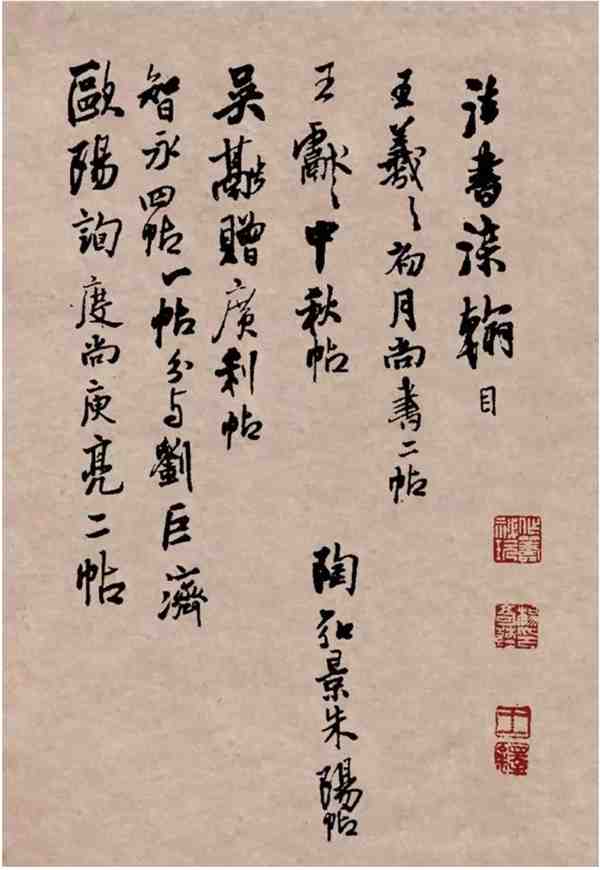 法書染翰目
王羲之初月尚書二帖
王獻之中秋帖 陶弘景朱陽帖
吳融贈廣利帖
智永四帖一帖分与劉巨濟
歐陽詢度尚庾亮二帖